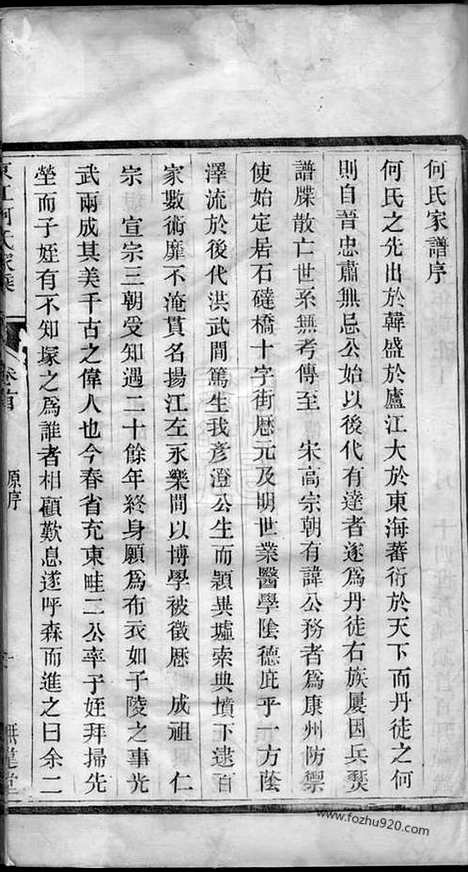 何氏家譜序
何氏之先出於韓盛於廬江大於東海蕃衍於天下而丹徒之何
則自晉忠肅無忌公始以後代有達者遂為丹徒右族屢因兵燹
譜牒散亡世系無考傳至　宋高宗朝有諱公務者為康州防禦
使始定居石䃮橋十字街厯元及明世業醫學陰德庇乎一方蔭
澤流於後代洪武間篤生我彥澄公生而穎異墟索典墳下逮百
家數術靡不淹貫名揚江左永樂間以博學被徵厯　成祖　仁
宗　宣宗三朝受知遇二十餘年終身願為布衣如子陵之事光
武兩成其美千古之偉人也今春省充東畦二公率予姪拜掃先
塋而子姪有不知塚之為誰者相顧歎息遂呼森而進之曰余二
江何氏家乘
卷首
原序
一
www.fozhu920.com